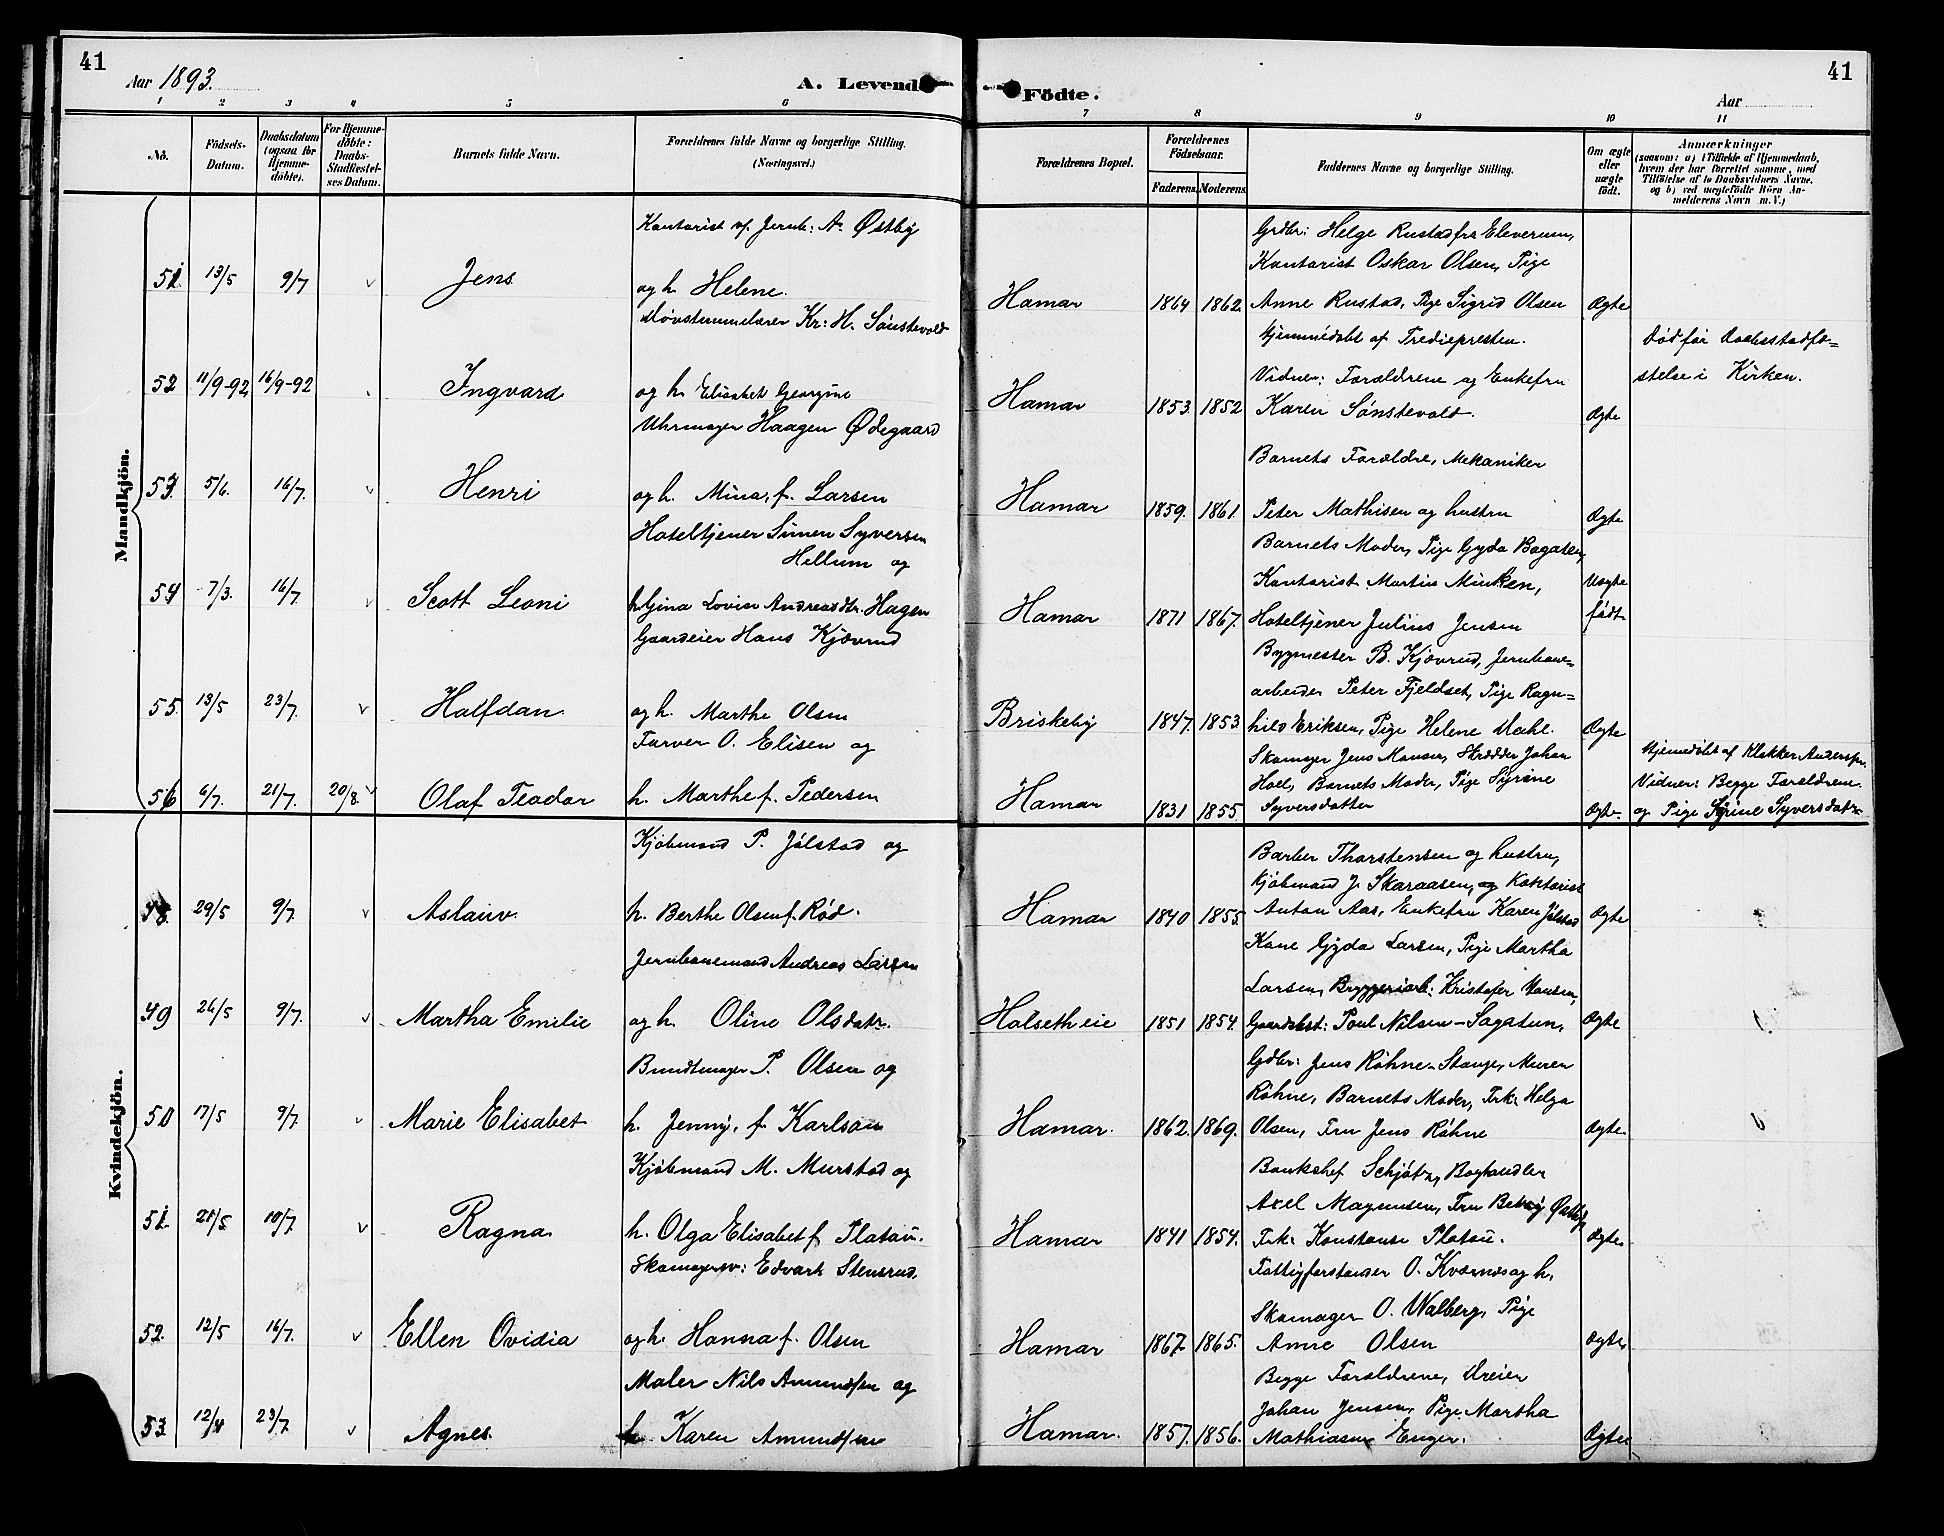 41
Aar 1893.
A. Levende
1 2 3 4 5 6
No.
Födsels-
Datum.
Daabsdatum
(ogsaa for
Hjemme-
döbte).
For Hjemme-
döbte:
Daabs-
Stadfæstel-
ses Datum.
Barnets fulde Navn.
Forældrenes fulde Navne og borgerlige Stilling.
(Næringsvei.)
Mandkjön.
Kontorist v/ Jernb: A. Østby
51. 13/5 9/7 v Jens og h. Helene.
Mønsterundlærer Kr: H. Sønstevold
52 11/9-92 16/9-92 Ingvard og h. Elisabet Georgine
Uhrmager Haagen Ødegaard
53. 5/6. 16/7. v Henri og h. Mina, f. Larsen
Hoteltjener Simen Syversen
Hellum og
54 7/3. 16/7 v Scott Leoni h. Gina Lovise Andreasdtr. Hagen
Gaardeier Hans Kjøvrud
55. 13/5 23/7. v Halfdan og h. Marthe Olsen
Farver O. Elisen og
56 6/7. 21/7. 20/8. v Olaf Teodor h. Marthe f. Pedersen
Kvindekjön.
Kjøbmand P. Jølstad og
48. 29/5 9/7. v Aslaug h. Berthe Olsen f. Rød.
Jernbanemand Andreas Larsen
49 26/5 9/7. v Martha Emilie og h. Oline Olsdatr.
Bundtmager P. Olsen og
50 17/5 9/7. v Marie Elisabet h. Jenny, f. Karlson
Kjøbmand M. Murstad og
51. 21/5 10/7. v Ragna h. Olga Elisabet f. Platou.
Skomagersv: Edvart Stensrud,
52. 12/5 16/7. v Ellen Ovidia og h. Hanna f. Olsen
Maler Nils Amundsen og
53. 12/4 23/7. v Agnes h. Karen Amundsen
41
Födte.
Aar
7 8 9 10 11
Forældrenes Bopæl.
Forældrenes
Födselsaar.
Faderens. Moderens.
Faddernes Navne og borgerlige Stilling.
Om ægte
eller
uægte
födt.
Anmærkninger
(saasom: a) i Tilfælde af Hjemmedaab,
hvem der har forrettet samme, med
Tilföielse af to Daabsvidners Navne,
og b) ved uægtefödte Börn An-
melderens Navn m. V.)
Grdbr: Helge Rustad fra Eleverum,
Kontorist Oskar Olsen, Pige
Hamar 1864 1862. Anne Rustad, Pige Sigrid Olsen Ægte
Hjemmedøbt af Trediepresten. Død før Daabsstadfæ-
Vidner: Forældrene og Enkefru stelse i Kirken.
Hamar 1853. 1852 Karen Sønstevold. Ægte
Barnets Forældre, Mekaniker
Hamar 1859. 1861. Peter Mathisen og hustru Ægte
Barnets Moder, Pige Gyda Bogaten,
Kontorist Martin Minken, Uægte
Hamar 1871 1867. Hoteltjener Julius Jensen født
Bygmester B. Kjøvrud, Jernbane-
arbeider Peter Fjeldset, Pige Ragn-
Briskeby 1847. 1853 hild Eriksen, Pige Helene Mæhl. Ægte
Skomager Jens Monsen, Skrædder Johan Hjemmedøbt af Klokker Andersen.
Hoel, Barnets Moder, Pige Syrine Vidner: Begge Forældrene
Hamar 1831 1855. Syversdatter Ægte. og Pige Syrine Syversdatr.
Barber Thorstensen og hustru,
Kjøbmand J. Skaraasen, og Kontorist
Hamar 1840 1855. Anton Aas, Enkefru Karen Jølstad Ægte
Kone Gyda Larsen, Pige Martha
Larsen, Bryggeriarb: Kristofer Hansen,
Holsetheie 1851 1854. Gaardbest: Poul Nilsen-Sagatun, Ægte
Gdbr: Jens Røhne-Stange, Maren
Røhne, Barnets Moder, Frk: Helga
Hamar. 1862. 1869. Olsen, Fru Jens Røhne Ægte
Bankchef Schjøtz, Boghandler
Axel Magnusen, Fru Betzy Østby
Hamar 1841 1854. Frk: Konstanse Platou. Ægte
Fattigforstander O. Kværnes og h.
Skomager O. Walberg, Pige
Hamar 1867. 1865. Anne Olsen Ægte
Begge Forældrene, Ureier
Johan Jensen, Pige Martha
Hamar. 1857. 1856. Mathiasen Enger. Ægte